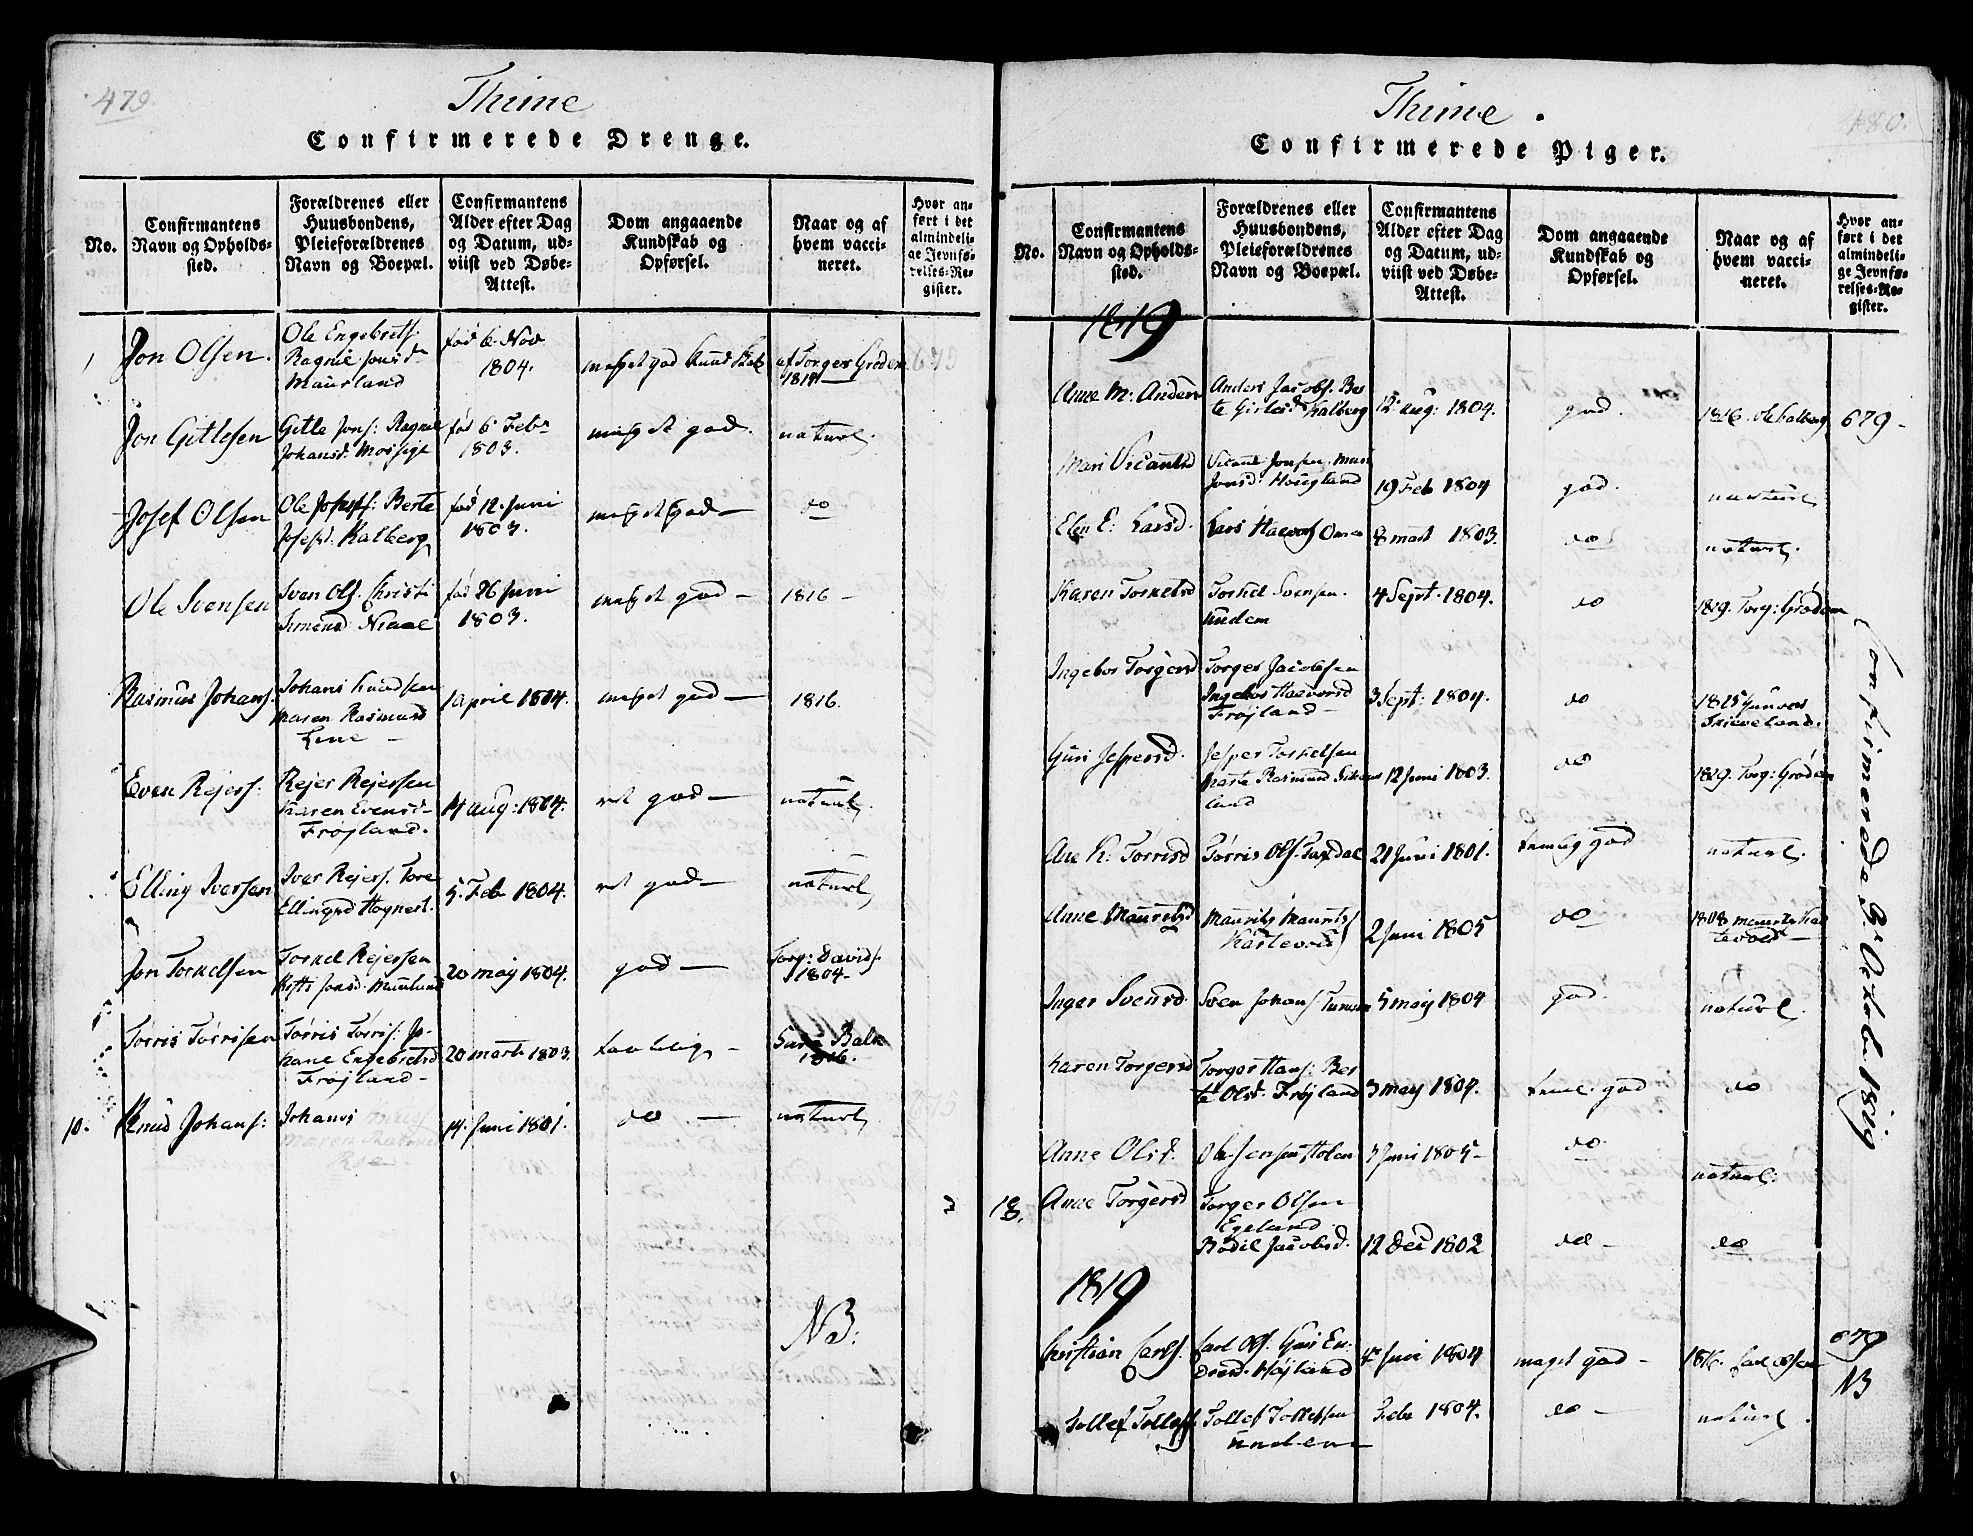 479.
Thime
Confirmerede Drenge.
No.
Confirmantens Navn og Opholdssted.
Forældrenes eller Huusbondens, Pleieforældrenes Navn og Boepæl.
Confirmantens Alder efter Dag og Datum, udviist ved Døbe-Attest.
Dom angaaende Kundskab og Opførsel.
Naar og af hvem vaccineret.
Hvor anført i det almindelige Jevnførelses-Register.
1 Jon Olsen. Ole Engebrets: Ragnie Jonsd Maurland fød 6 Nov 1804. meget god Kundskab af Torger Grødem 1819
Jon Gitlesen Gitle Jons: Ragnie Johansd. Mossige fød 6 Febr 1803. meget god. naturl.
Josef Olsen Ole Josefs: Berte Josefsd. Kalberg fød 12. Juni 1803. meget god — do
Ole Svensen Sven Ols. Christi Simensd. Niaae fød 26 Juni 1803. meget god — 1816 —
Rasmus Johans. Johans Knudsen Maren Rasmusd Line — 1 April 1804. meget god — 1816.
Even Rejers: Rejer Rejersen Karen Evensd — Frøjland. 14 aug: 1804. ret god — naturl.
Elling Iversen Iver Rejers. Tore Ellingsd Hognest. 5. Feb 1804. ret god — naturl
Jon Torkelsen Torkel Rejersen Jonsd. 20 maj 1804. god — Torg: Davids. 1804 —
Torris Torrisen Tørris Tørris: Johane Engebretsd Frøjland — 20 marti 1803. taalelig — 1816.
10. Knud Johans: Johanis 14. Juni 1801. do — naturl
NB:
480.
Thime.
Confirmerede Piger.
No.
Confirmantens Navn og Opholdssted.
Forældrenes eller Huusbondens, Pleieforældrenes Navn og Boepæl.
Confirmantens Alder efter Dag og Datum, udviist ved Døbe-Attest.
Dom angaaende Kundskab og Opførsel.
Naar og af hvem vaccineret.
Hvor anført i det almindelige Jevnførelses-Register.
1819
Anne M: Andersd Anders Jacobs. Berte Girlesd Kalberg 12 aug: 1804. god. 1816. Ole Kalberg 679 —
Mari Vicantsd Vicant Jonsen. Mari Jonsd: Hougland 19 Feb 1804 god. naturl
Elen E: Larsd. Lars Halvors 8 mart 1803. do naturl.
Karen Torkelsd Torkel Svensen. Undem 4 Sept. 1804. do 1819. Torg: Grødem
Ingebor Torgersd Torger Jacobsen Ingebor Haavorsd Frøjland — 3 Sept: 1804. do 1815 Gunvor
Guri Jespersd. Jesper Torkelsen Marte Rasmusd 12 Juni 1803. do 1819. Torg: Grødem
Ane K: Torrisd Tørris Ols. Taxdal 21 Juni 1801. temelig god naturl.
Anne Mauretsd Maurits Maurits 2 Juni 1805 do 1808
Inger Svensd. Sven Johans Tunem 5 maj 1804 god. naturl.
Karen Torgersd Torger Hans: Berte Olsd. Frøjland 3 maj 1804. teme: god do
Anne Olsd. Ole Jensen 3 Juni 1805 — do naturl.
13. Anne Torgersd Torger Olsen Egeland Bodil Jacobsd. 12 Dec 1802 do — do
1819
Christian Carls. Carl Ols. Guri Endresd. Højland Juni 1804 meget god — 1816. Carl Olsen 679 NB
Tollef Tollefs. Tollef Tollefsen Undem Feb 1804. do — naturl.
Confirmerede 3. October 1819